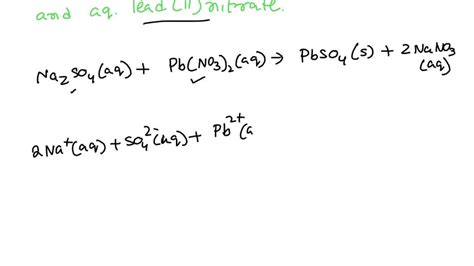 and aq. lead(II) nitrate.
Na₂SO₄(aq) + Pb(NO₃)₂(aq) → PbSO₄(s) + 2NaNO₃
(aq)
2Na⁺(aq) + SO₄²⁻(aq) + Pb²⁺(a